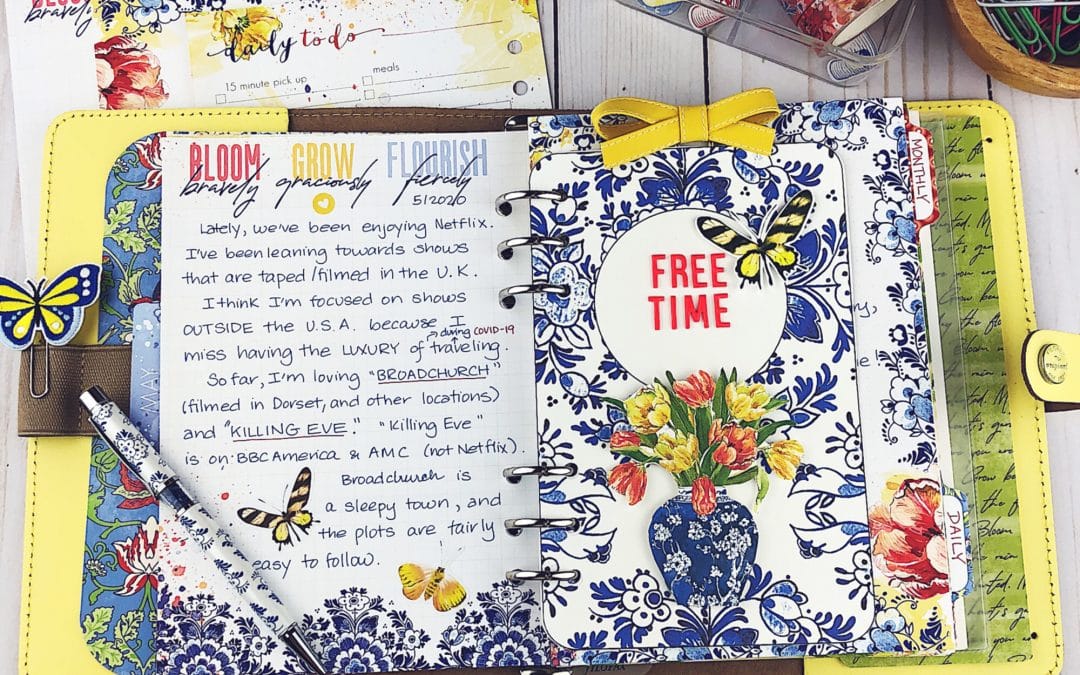 bravely
daily to do
15 minute pick up
meals
BLOOM GROW FLOURISH
bravely graciously fiercely
5/2020
Lately, we've been enjoying Netflix.
I've been leaning towards shows
that are taped/filmed in the U.K.
I think I'm focused on shows
OUTSIDE the U.S.A. because I
during COVID-19
miss having the LUXURY of traveling.
So far, I'm loving "BROADCHURCH"
(filmed in Dorset, and other locations)
and "KILLING EVE." "Killing Eve"
is on BBC America & AMC (not Netflix).
Broadchurch is
a sleepy town, and
the plots are fairly
easy to follow.
MAY
FREE
TIME
MONTHLY
DAILY